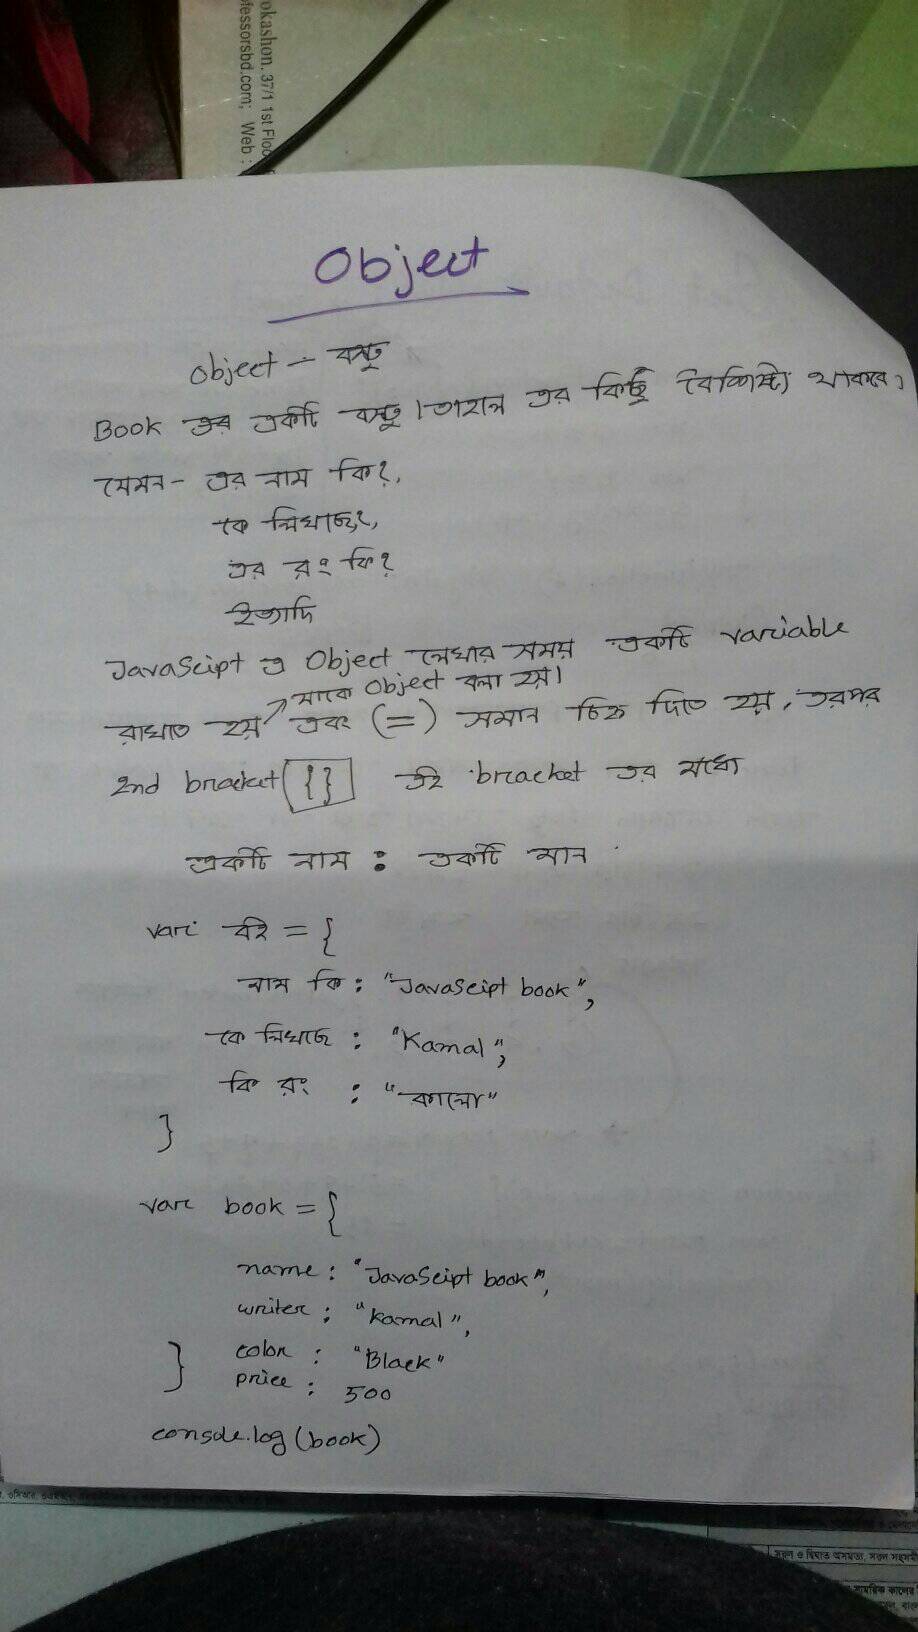 okashon. 37/1 1st Floo
fessorsbd.com; Web :
Object
object - বস্তু
Book এর একটি বস্তু। তাহলে এর কিছু বৈশিষ্ট্য থাকবে,
যেমন- এর নাম কি?,
কে লিখেছে?,
এর রং কি?
ইত্যাদি
JavaScipt এ Object লেখার সময় একটি variable
যাকে Object বলা হয়।
রাখতে হয় এবং (=) সমান চিহ্ন দিতে হয়, তরপর
2nd bracket {} এই bracket এর মধ্যে
একটি নাম : একটি মান
var বই = {
নাম কি : "JavaScipt book",
কে লিখছে : "Kamal",
কি রং : "কালো"
}
var book = {
name : "JavaScipt book",
writer : "Kamal",
color : "Black"
} price : 500
console.log(book)
সরল ও দ্বিঘাত অসমতা, সরল সহসমী